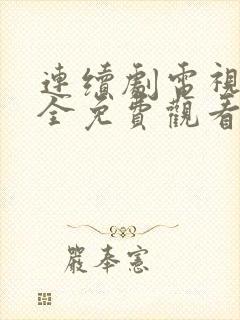 連續劇電視
全免費觀看
嚴奉憲